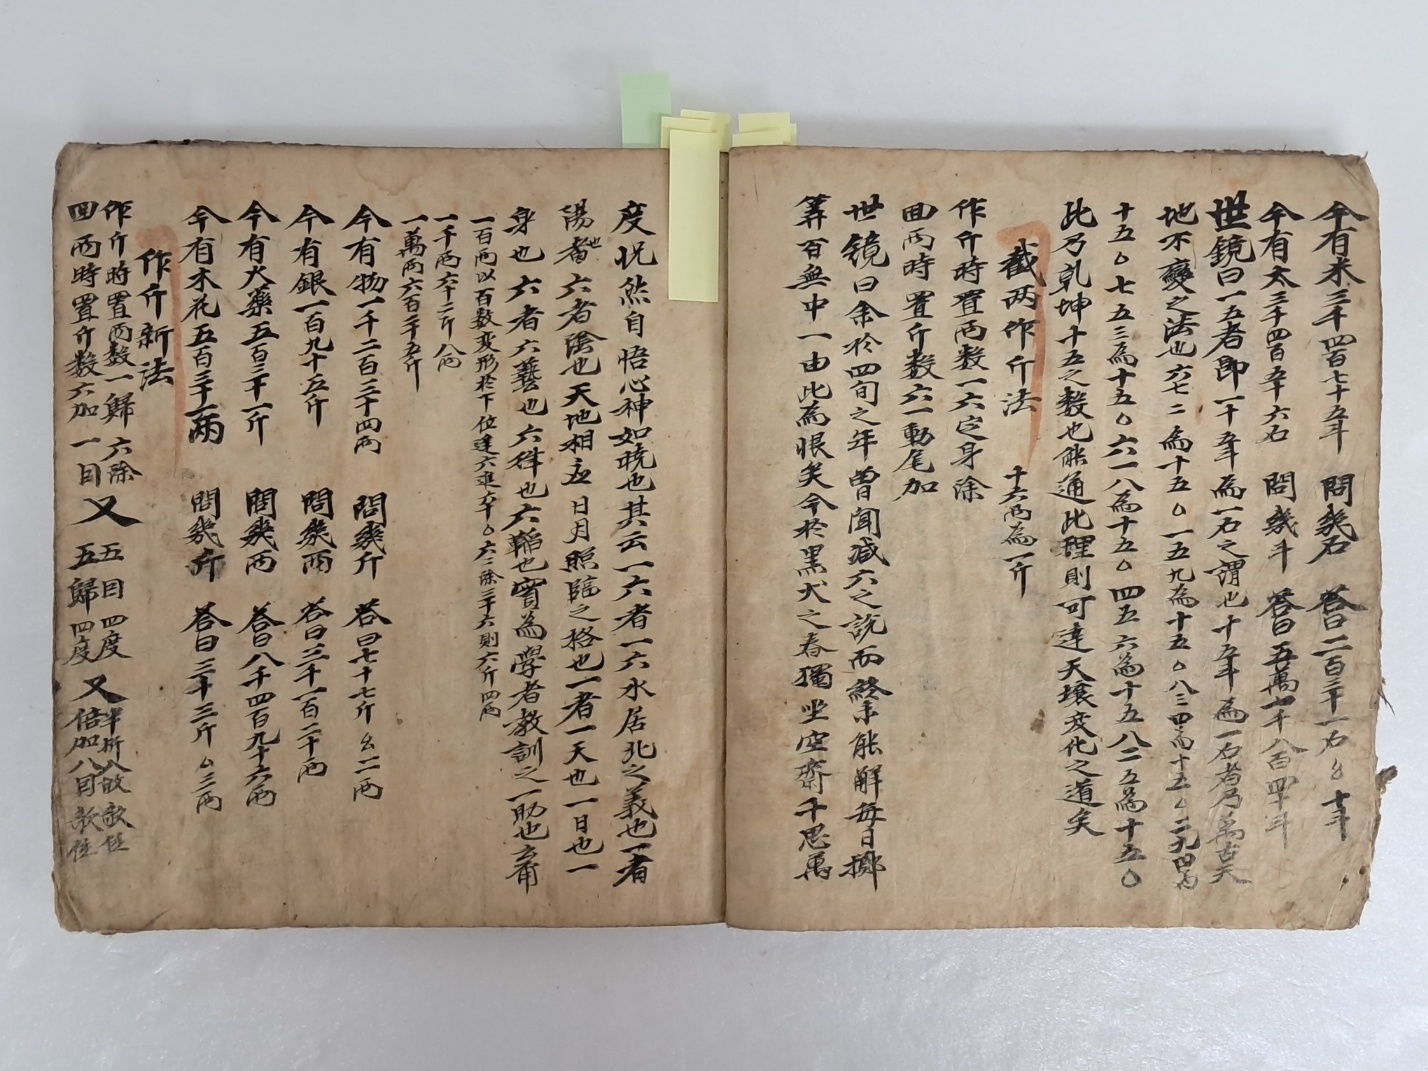 今有米三千四百七十五斗 問幾石 答曰二百三十一石 十斗
今有太三千四百五十六石 問幾斗 答曰五萬一千八百四十斗
世鏡曰一五者卽一十五斗爲一石之謂也十五斗爲一石者乃萬古天
地不變之法也六七二爲十五○一五九爲十五○八三四爲十五○二九四爲
十五○七五三爲十五○六一八爲十五○四五六爲十五八二五爲十五○
此乃乾坤十五之數也能通此理則可達天壤变化之道矣
截两作斤法 十六两爲一斤
作斤時置两數一六定身除
回两時置斤數六一動尾加
世鏡曰余於四旬之年曾聞减六之説而終未能解每日擲
筭百無中一由此爲恨矣今於黑犬之春獨坐空齋千思萬
度怳然自悟心神如暁也其云一六者一六水居北之義也一者
陽者也六者陰也天地相応日月照臨之格也一者一天也一日也一
身也六者六藝也六律也六韜也實爲學者教訓之一助也
一百两以百數変形於下位達六進六十○六六除三十六則六斤四两
一千两六十二斤八两
一萬两六百二十五斤
今有物一千二百三十四两 問幾斤 答曰七十七斤 二两
今有銀一百九十五斤 問幾两 答曰三千一百二十两
今有火藥五百三十一斤 問幾两 答曰八千四百九十六两
今有木花五百三十一两 問幾斤 答曰三十三斤 三两
作斤新法
作斤時置两數一歸六除 又 五目四度 又 半折八
回两時置斤數六加一目 五歸四度 倍加八目